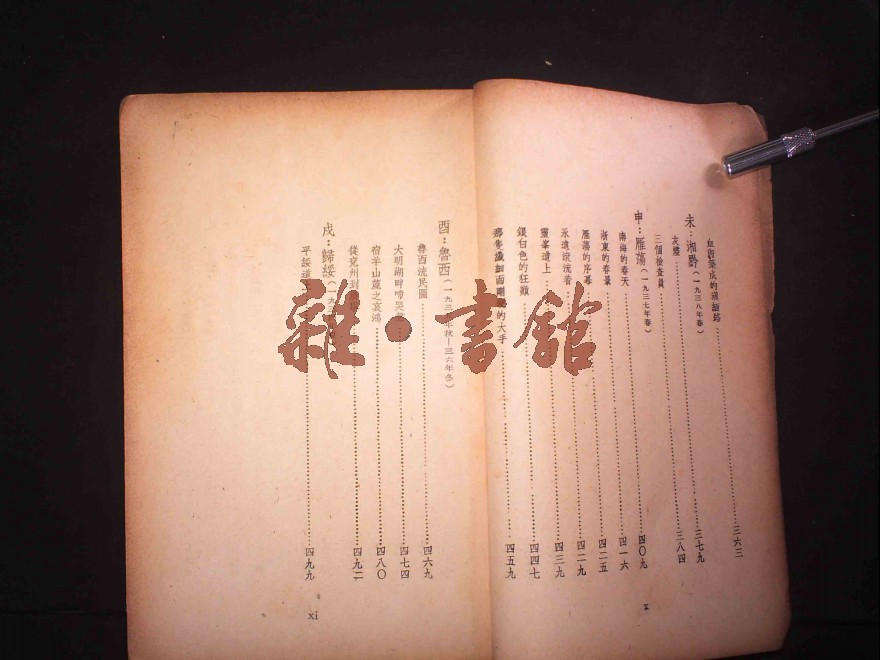 血肉築成的滇緬路……三六三
未：湘黔（一九三八年春）……三七九
灰燼……三八四
三個檢查員
申：雁蕩（一九三七年春）……四〇九
南海的春天……四一六
浙東的春景……四二五
雁蕩的序幕……四二九
永遠滾流着……四三九
靈峯道上
銀白色的狂巔……四四七
那隻纖細而剛的大手……四五九
x
酉：魯西（一九三年秋—三六年冬）
魯西流民圖……四六九
大明湖畔啼哭……四七四
宿羊山麓之哀鴻……四八〇
從兗州到……四九二
戌：歸綏（一九三
平綏道……四九九
xi
雜·書館